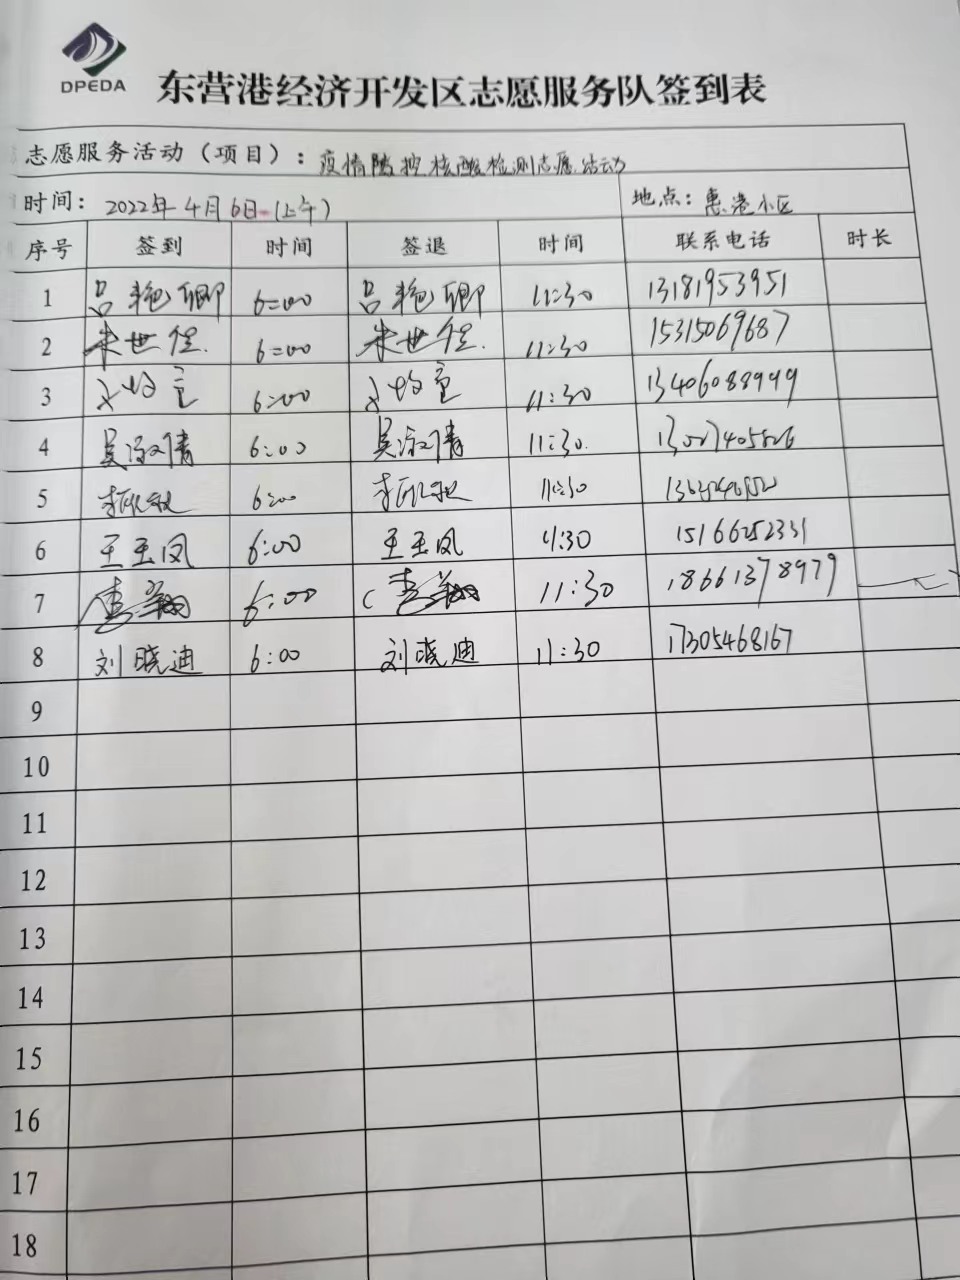 DPEDA
东营港经济开发区志愿服务队签到表
志愿服务活动（项目）：疫情防控核酸检测志愿活动
时间：2022年4月6日（上午） 地点：惠港小区
序号 签到 时间 签退 时间 联系电话 时长
1 吕艳卿 6:00 吕艳卿 11:30 13181953951
2 朱世俊 6:00 朱世俊 11:30 15315069687
3 6:00 11:30 13406088999
4 吴淑倩 6:00 吴淑倩 11:30
5 6:00 11:30
6 王玉凤 6:00 王玉凤 11:30 15166252331
7 李翔 6:00 李翔 11:30 18661378979
8 刘晓迪 6:00 刘晓迪 11:30 17305468167
9
10
11
12
13
14
15
16
17
18